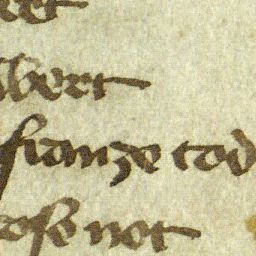 bert
fianze tod
ose not